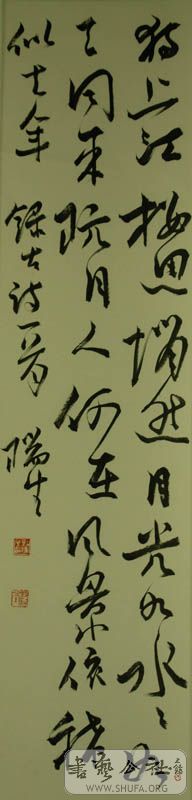 独上江楼思悄然月光如水々如
天同来玩月人何在风景依稀
似去年 録古诗一首 瑞生
書藝公社
WWW.SHUFA.ORG